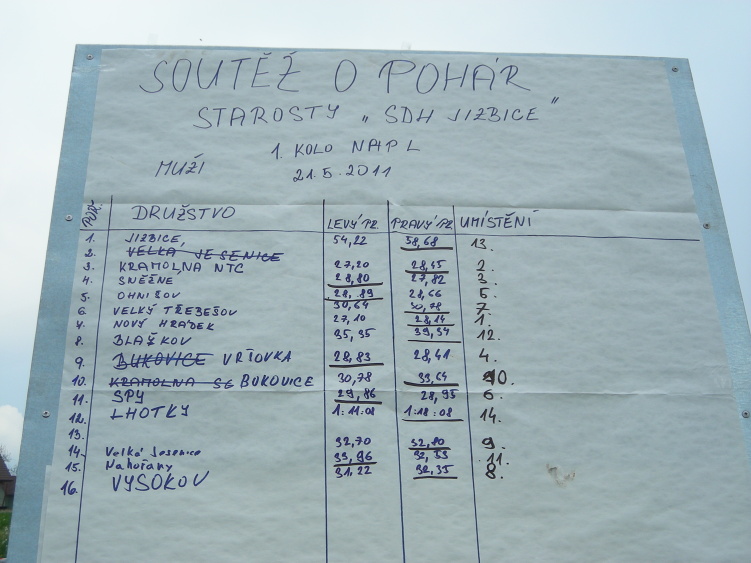 SOUTĚŽ O POHÁR
STAROSTY „SDH JIZBICE"
1. KOLO NAPL
MUŽI 21.5.2011
POŘ. DRUŽSTVO LEVÝ PR. PRAVÝ PR. UMÍSTĚNÍ
1. JIZBICE, 54,22 58,68 13.
2. VELKÁ JESENICE
3. KRAMOLNA NTC 27,20 28,45 2.
4. SNĚŽNÉ 28,80 27,82 3.
5. OHNIŠOV 28,89 28,66 5.
6. VELKÝ TŘEBEŠOV 30,64 30,78 7.
7. NOVÝ HRÁDEK 27,10 28,14 1.
8. BLAŽKOV 35,35 39,34 12.
9. BUKOVICE VRŤOVKA 28,83 28,41 4.
10. KRAMOLNA SG BUKOVICE 30,78 33,64 10.
11. SPY 29,86 28,95 6.
12. LHOTKY 1:11:08 1:18:08 14.
13.
14. Velká Jesenice 32,70 32,80 9.
15. Nahořany 33,96 32,53 11.
16. VYSOKOV 31,22 32,35 8.